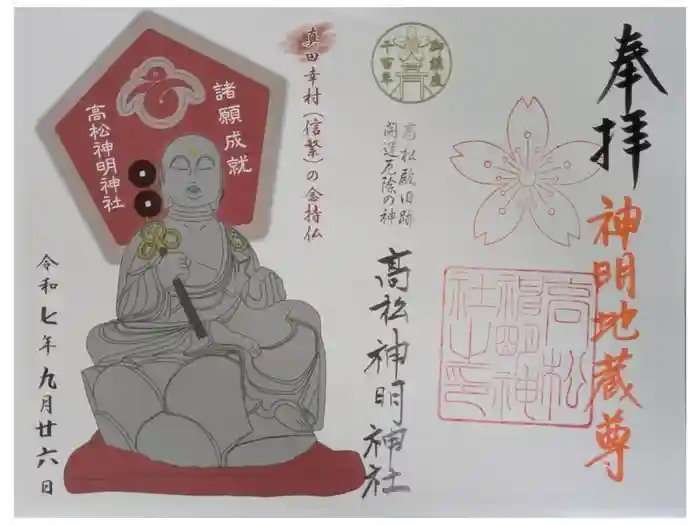 奉拝
神明地蔵尊
高松神明神社之印
御鎮座
千百年
高松殿旧跡
開運厄除の神
高松神明神社
真田幸村(信繁)の念持仏
諸願成就
高松神明神社
令和七年九月廿六日